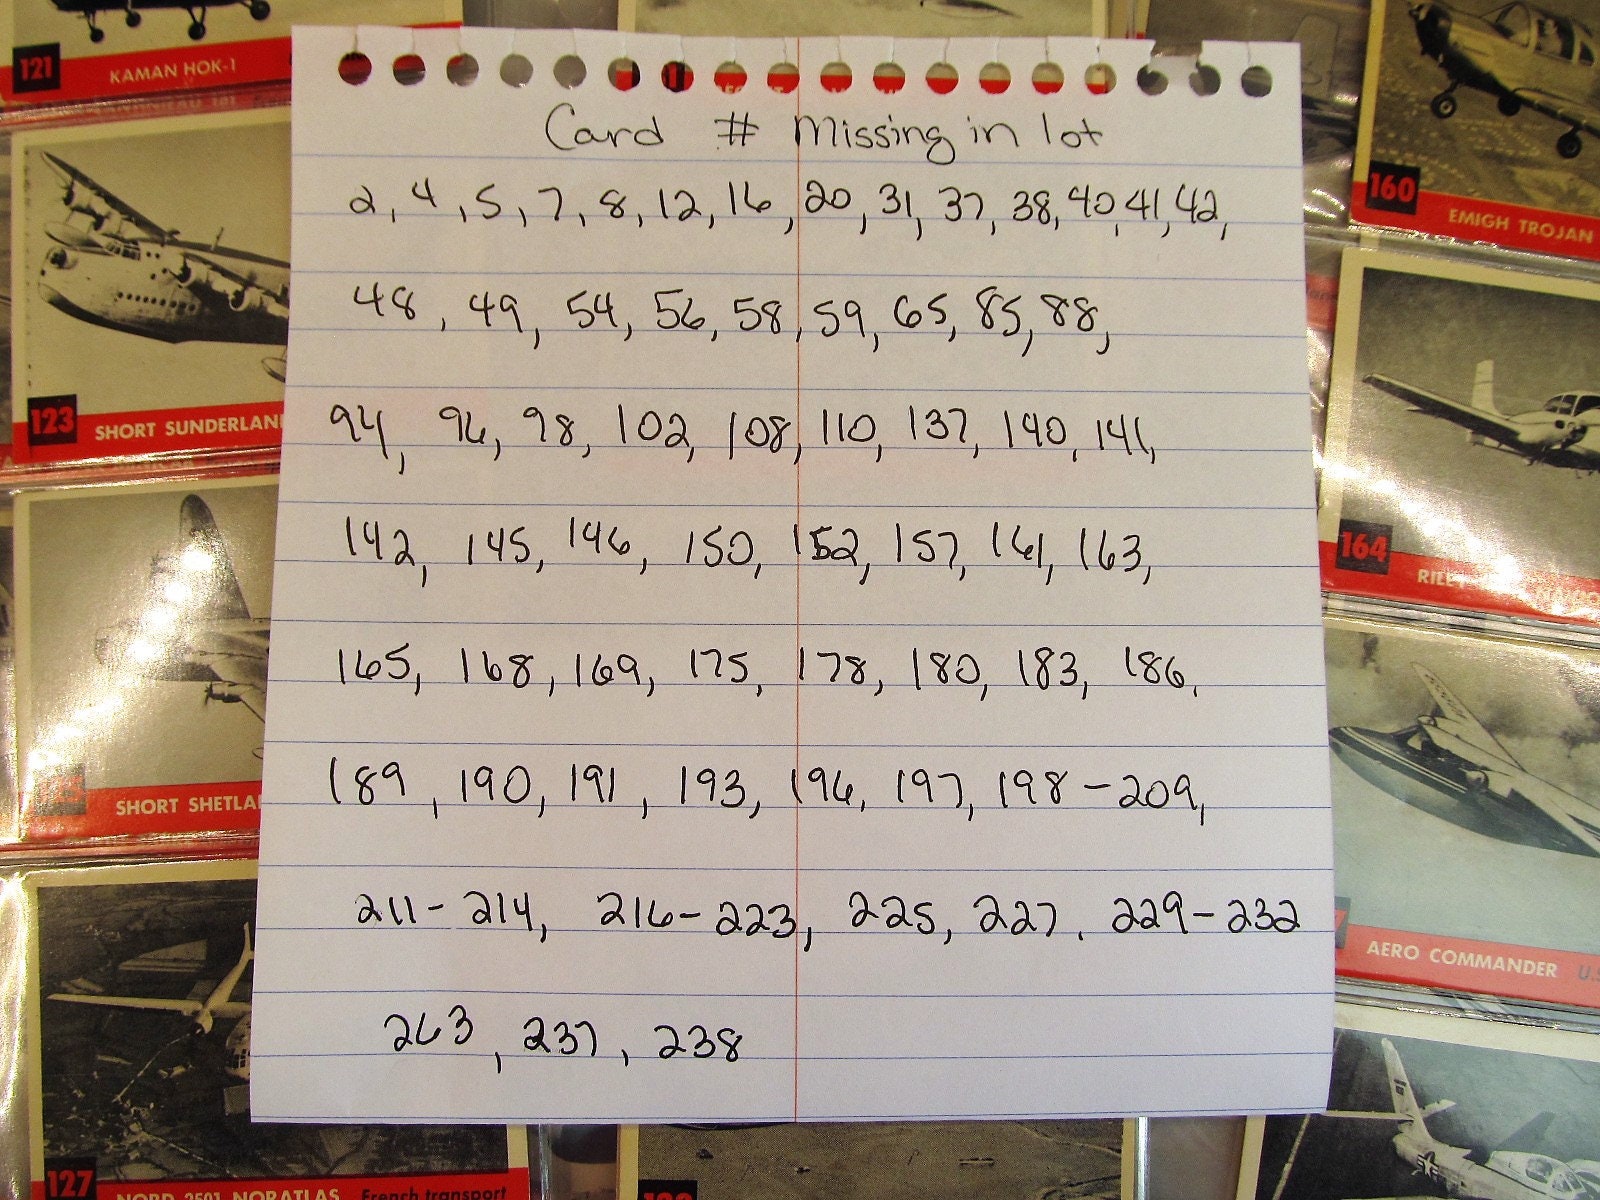 Card # Missing in lot
2, 4, 5, 7, 8, 12, 16, 20, 31, 37, 38, 40, 41, 42,
48, 49, 54, 56, 58, 59, 65, 85, 88,
94, 96, 98, 102, 108, 110, 137, 140, 141,
142, 145, 146, 150, 152, 157, 161, 163,
165, 168, 169, 175, 178, 180, 183, 186,
189, 190, 191, 193, 196, 197, 198-209,
211-214, 216-223, 225, 227, 229-232
263, 237, 238
121 KAMAN HOK-1
123 SHORT SUNDERLAN
SHORT SHETLA
127 NORD 2501 NORATLAS French transport
160 EMIGH TROJAN
164
AERO COMMANDER U.S